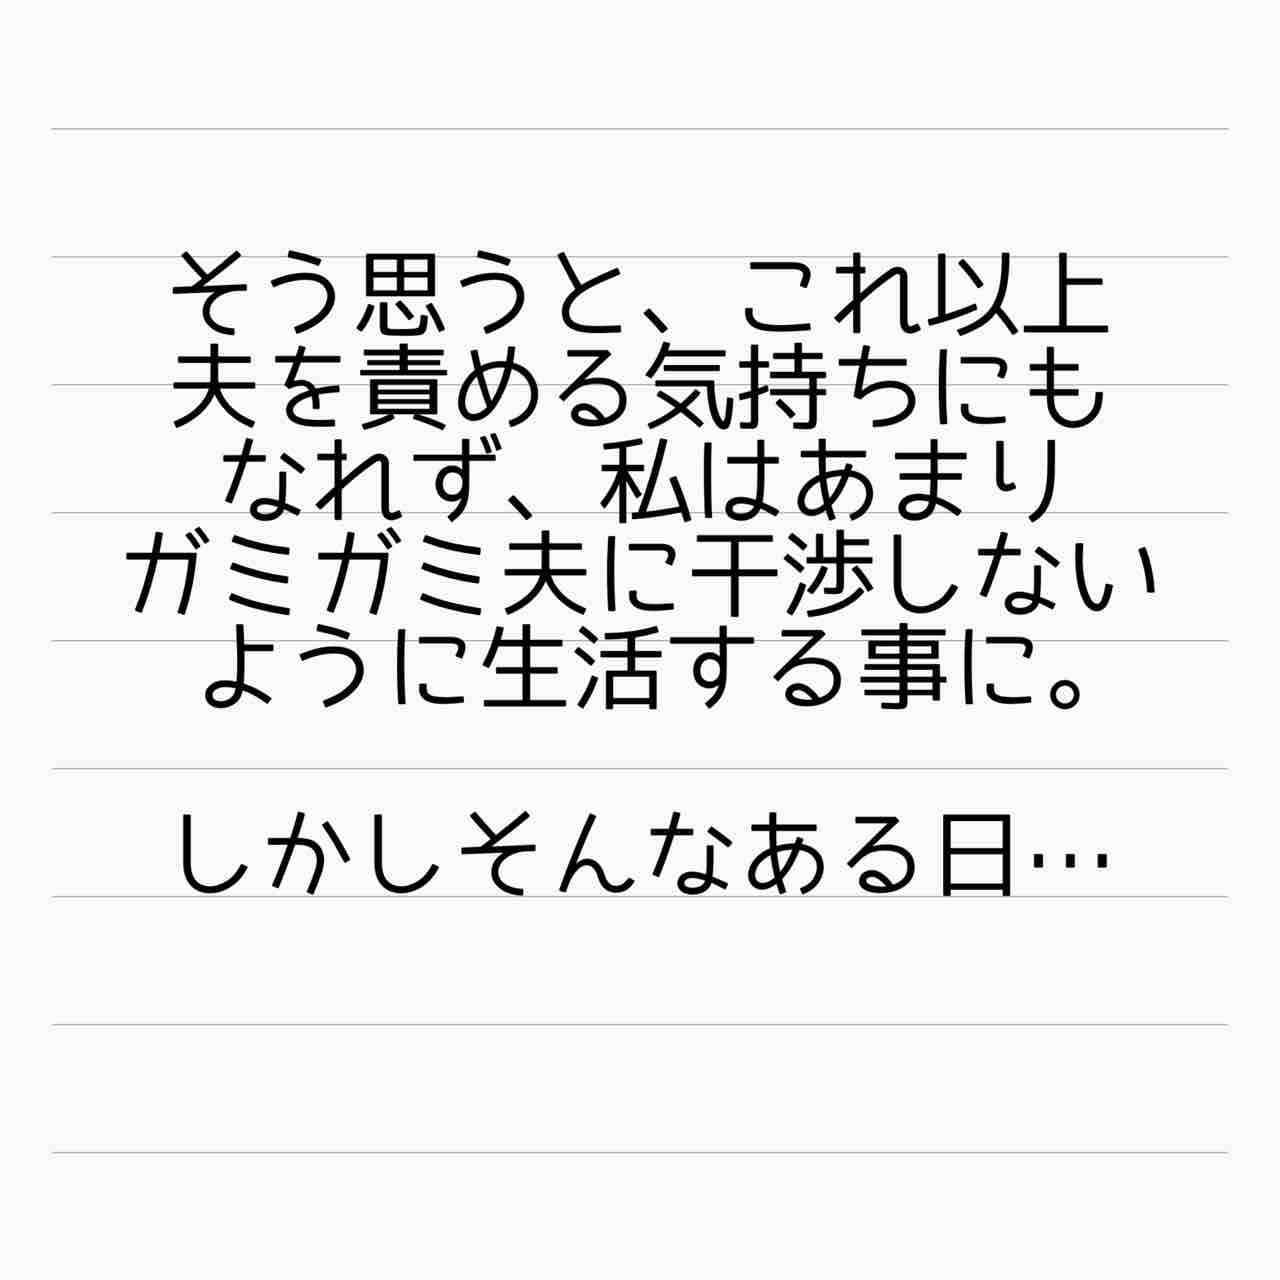 そう思うと、これ以上
夫を責める気持ちにも
なれず、私はあまり
ガミガミ夫に干渉しない
ように生活する事に。
しかしそんなある日…